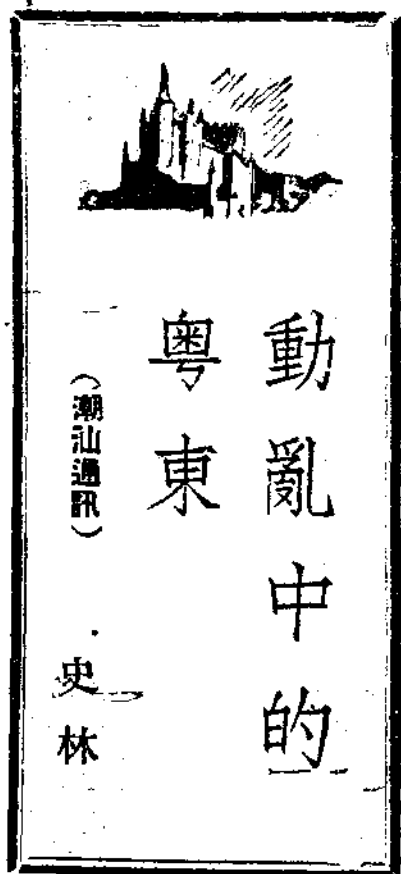 動亂中的
粤東
（潮汕通訊）
史林